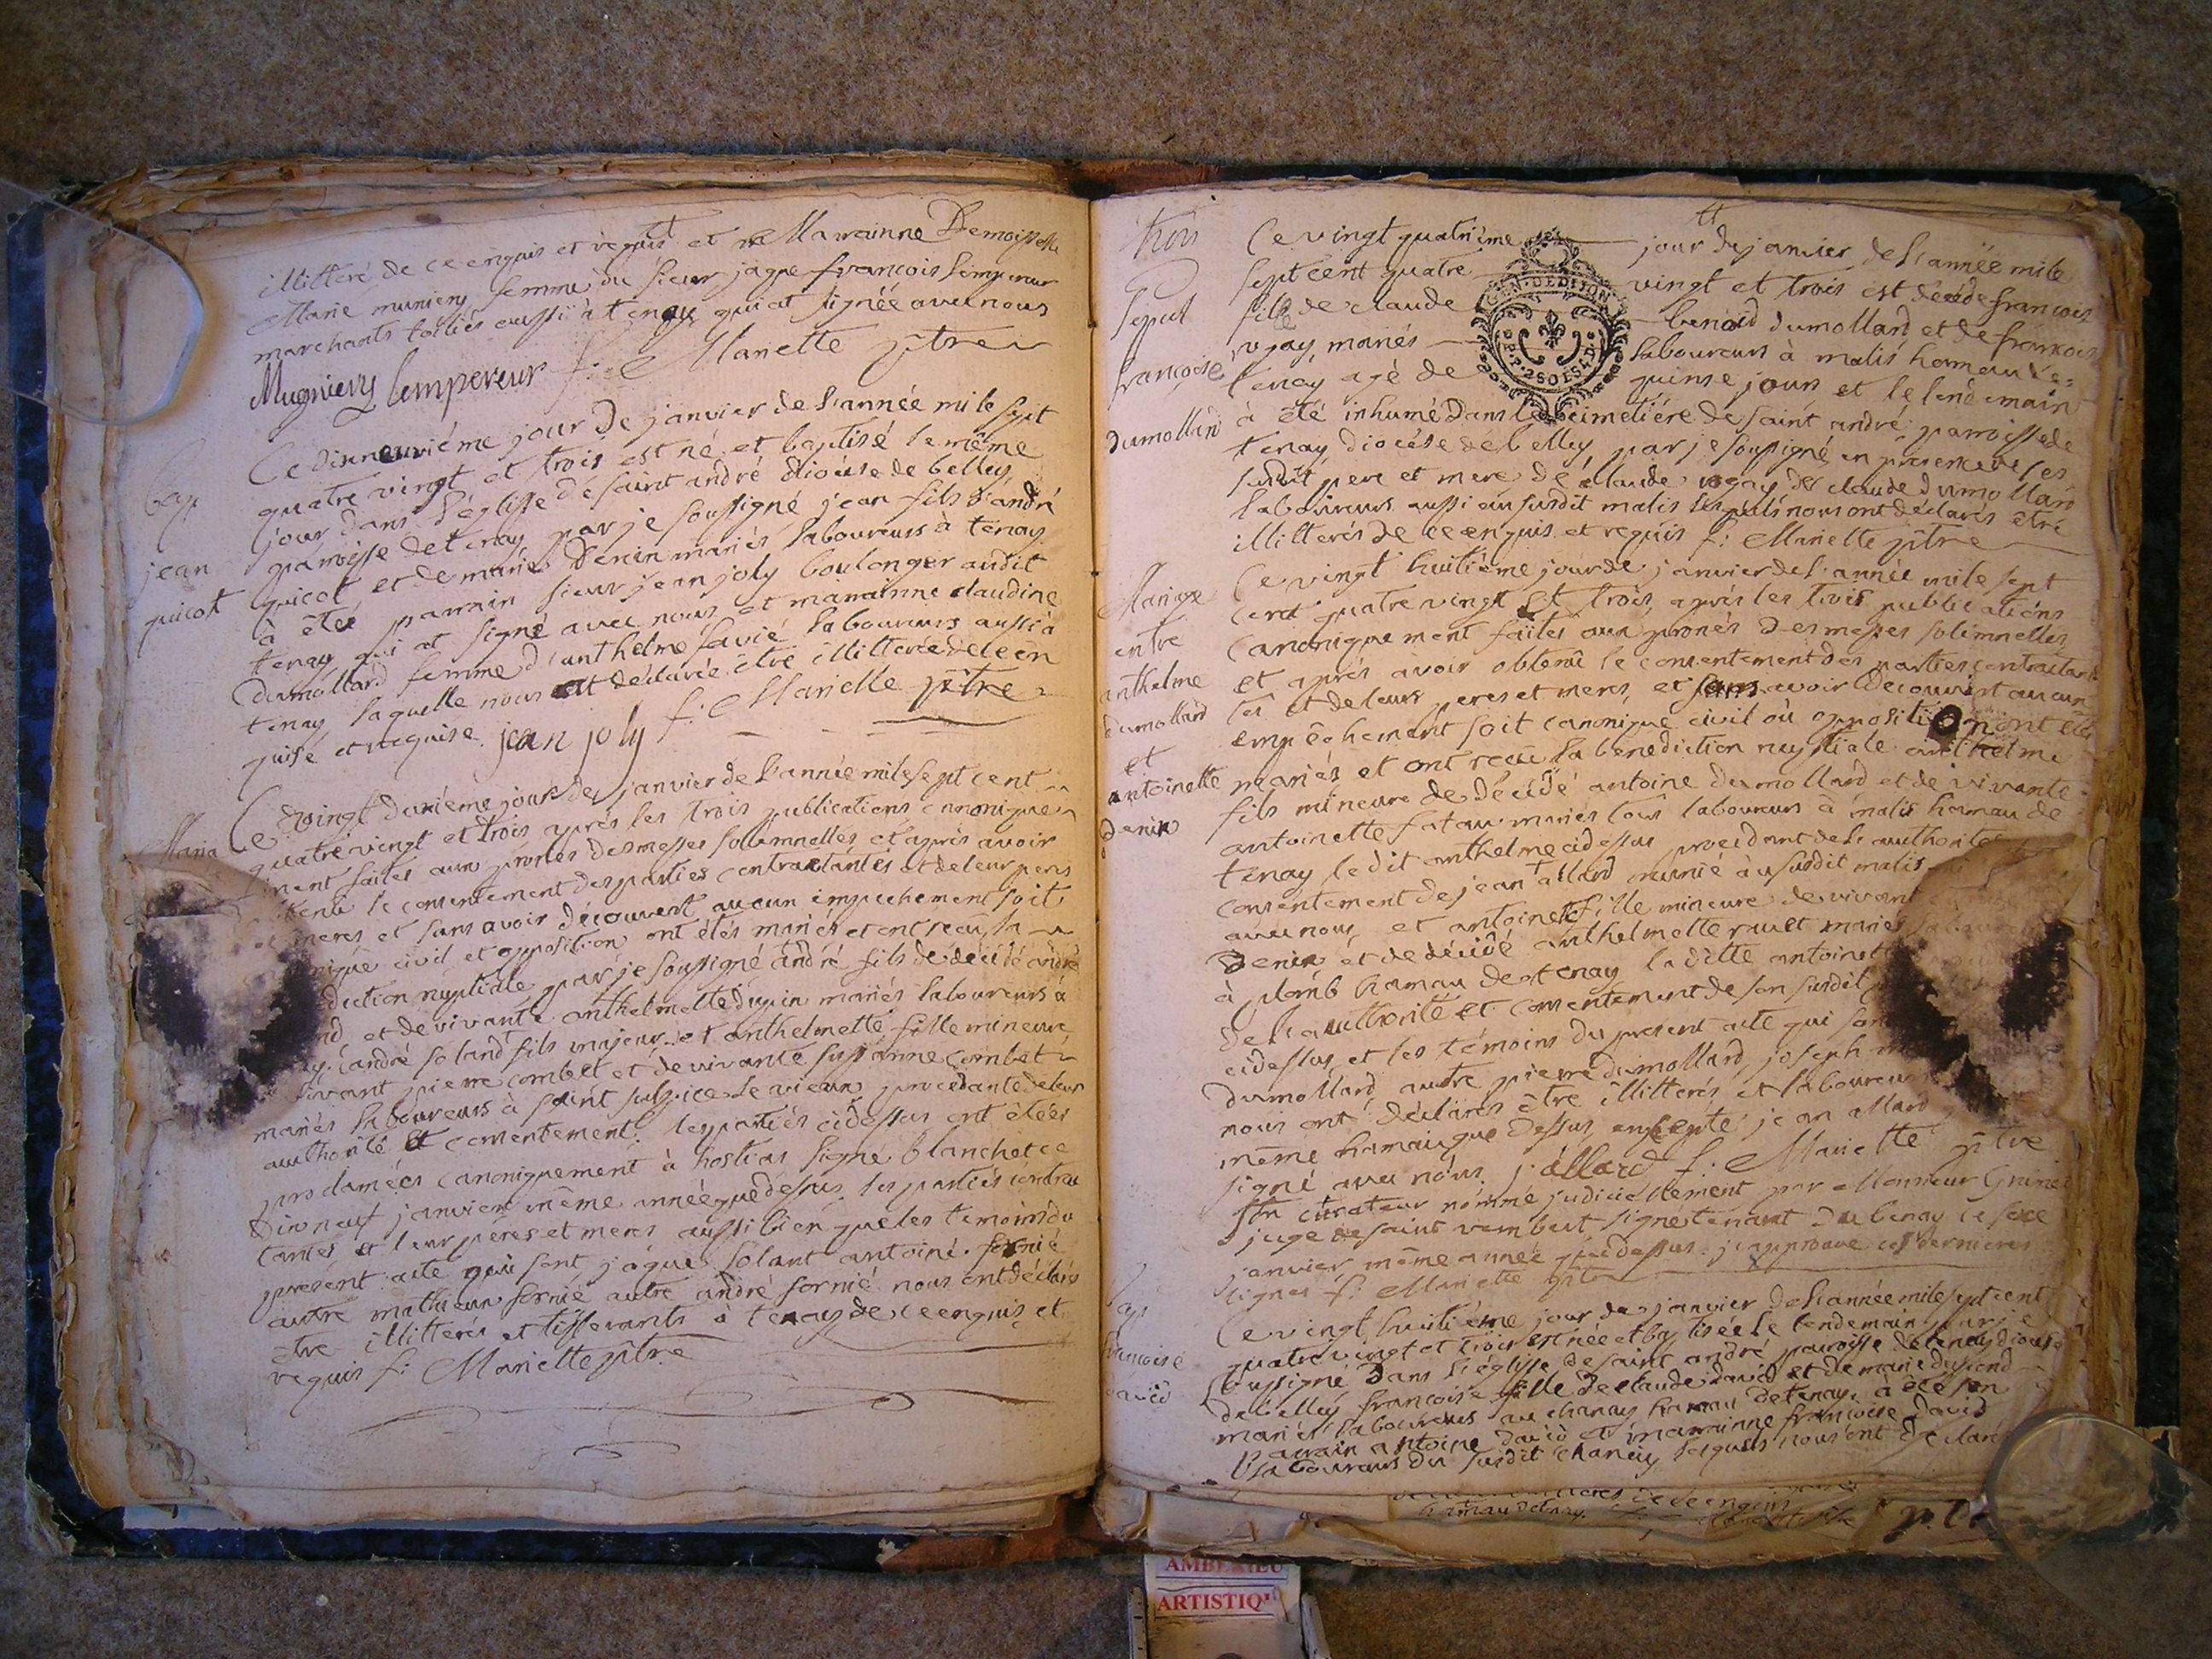 illitteré de ce enquis et requis et sa Marrainne Demoiselle
Marie muniery femme du sieur jaque françois l'empereur
marchants toilies aussi à tenay qui at signée avec nous
Mugniery lempereur f: Mariette ptre
Ce disneuviéme jour De janvier de l'année mile sept
quatre vingt et trois est né et baptisé le même
bap
jour dans l'église de saint andré dioüse de belley
paroisse de tenay par je soussigné jean fils d'andré
jean
quicot et de marie Denin mariés laboureurs à tenay
quicot
à étéé parrain sieur jean joly boulonger audit
tenay qui at signé avec nous et marrainne claudine
dumollard femme d'anthelme savié laboureurs aussi à
tenay laquelle nous at déclarée être illitterée de ce en
quise et requise jean joly f: Mariette ptre
Ce vingt deuxième jour de janvier de l'année mile sept cent
quatre vingt et trois aprés les trois publications canonique
Maria
ment faites aux prones des messes solemnelles et aprés avoir
le consentement des parties contractantes et de leur peres
meres et sans avoir découvert aucun empechement soit
civil et opposition ont étés mariés et ont reçu la
diction nuptiale par je soussigné andré fils de décédé andré
et de vivante anthelmette dupin mariés laboureurs à
andré soland fils majeur et anthelmette fille mineure
vivant pierre combet et de vivante susanne combet
mariés laboureurs à saint sulpice le vieux procedante de leur
authorité et consentement. les parties cidessus ont étéés
proclamées canoniquement à hostias signé blanchet ce
dixneuf janvier même année que dessus les parties contrac
tantes et leur péres et meres aussi bien que les temoins du
present acte qui sont jaque solant antoine fornié
autre mathieu fornié autre andré fornié nous ont déclarés
être illitterés et tisserants à tenay de ce enquis et
requis f: Mariette ptre
trois
Ce vingt quatriéme jour de janvier de l'année mile
sept cent quatre vingt et trois est decede françois
Sepul
fils de claude benoid dumollard et de françois
ugay mariés laboureurs à malis hameau de
françoise
tenay agé de quinse jours et le lendemain
dumollard
à été inhumé dans le cimetiére de saint andré paroisse de
tenay diocése de belley par je soussigné en presence de ses
susdit pere et mere de claude ugay de claude dumollard
laboureurs aussi au susdit malis lesquels nous ont déclarés être
illitterés de ce enquis et requis f: Mariette ptre
Mariage
Ce vingt huitiéme jour de janvier de l'année mile sept
entre
cent quatre vingt et trois aprés les trois publications
canoniquement faites aux prones des messes solemnelles
anthelme
et aprés avoir obtenu le consentement des parties contractan
dumollard
tes et de leurs peres et meres, et sans avoir découvert aucun
et
empêchement soit canonique civil où opposition ont étés
antoinette
mariés et ont reçue la benediction nuptiale anthelme
Denin
fils mineure de décédé antoine dumollard et de vivante
antoinette mariés tous laboureurs à malis hameau de
tenay le dit anthelme cidessus procedant de l'authorité
consentement de jean allard munié au susdit malis
avec nous et antoinette fille mineure de vivant
Denin et de décidé anthelmette mariés
à plomb hamau de tenay la ditte antoinett
de l'authorité et consentement de son susdit
cidessus et les témoins du present acte qui son
dumollard autre pierre dumollard joseph
nous ont déclarés être illitterés et laboureurs
même hamau que dessus excepté jean allard
signé avec nous j'allard f: Mariette ptre
son curateur nommé judiciellement par Monsieur
juge de saint rambert signé tenant ce
janvier même année que dessus. j'approuve ces dernieres
lignes f: Mariette ptre
bap
Ce vingt huitiéme jour de janvier de l'année mile sept cent
françoise
quatre vingt et trois est née et baptisée le lendemain par je
david
soussigné dans l'église de saint andré paroisse de tenay diouse
de belley françoise fille de claude david et de marie dupond
mariés laboureurs au chanay hamau de tenay. à été son
parrain antoine david et marrainne françoise david
laboureurs du susdit chanay lesquels nous ont déclaré
hamau de tenay
GEN. DE DIJON
AMBERIEU
ARTISTIQ